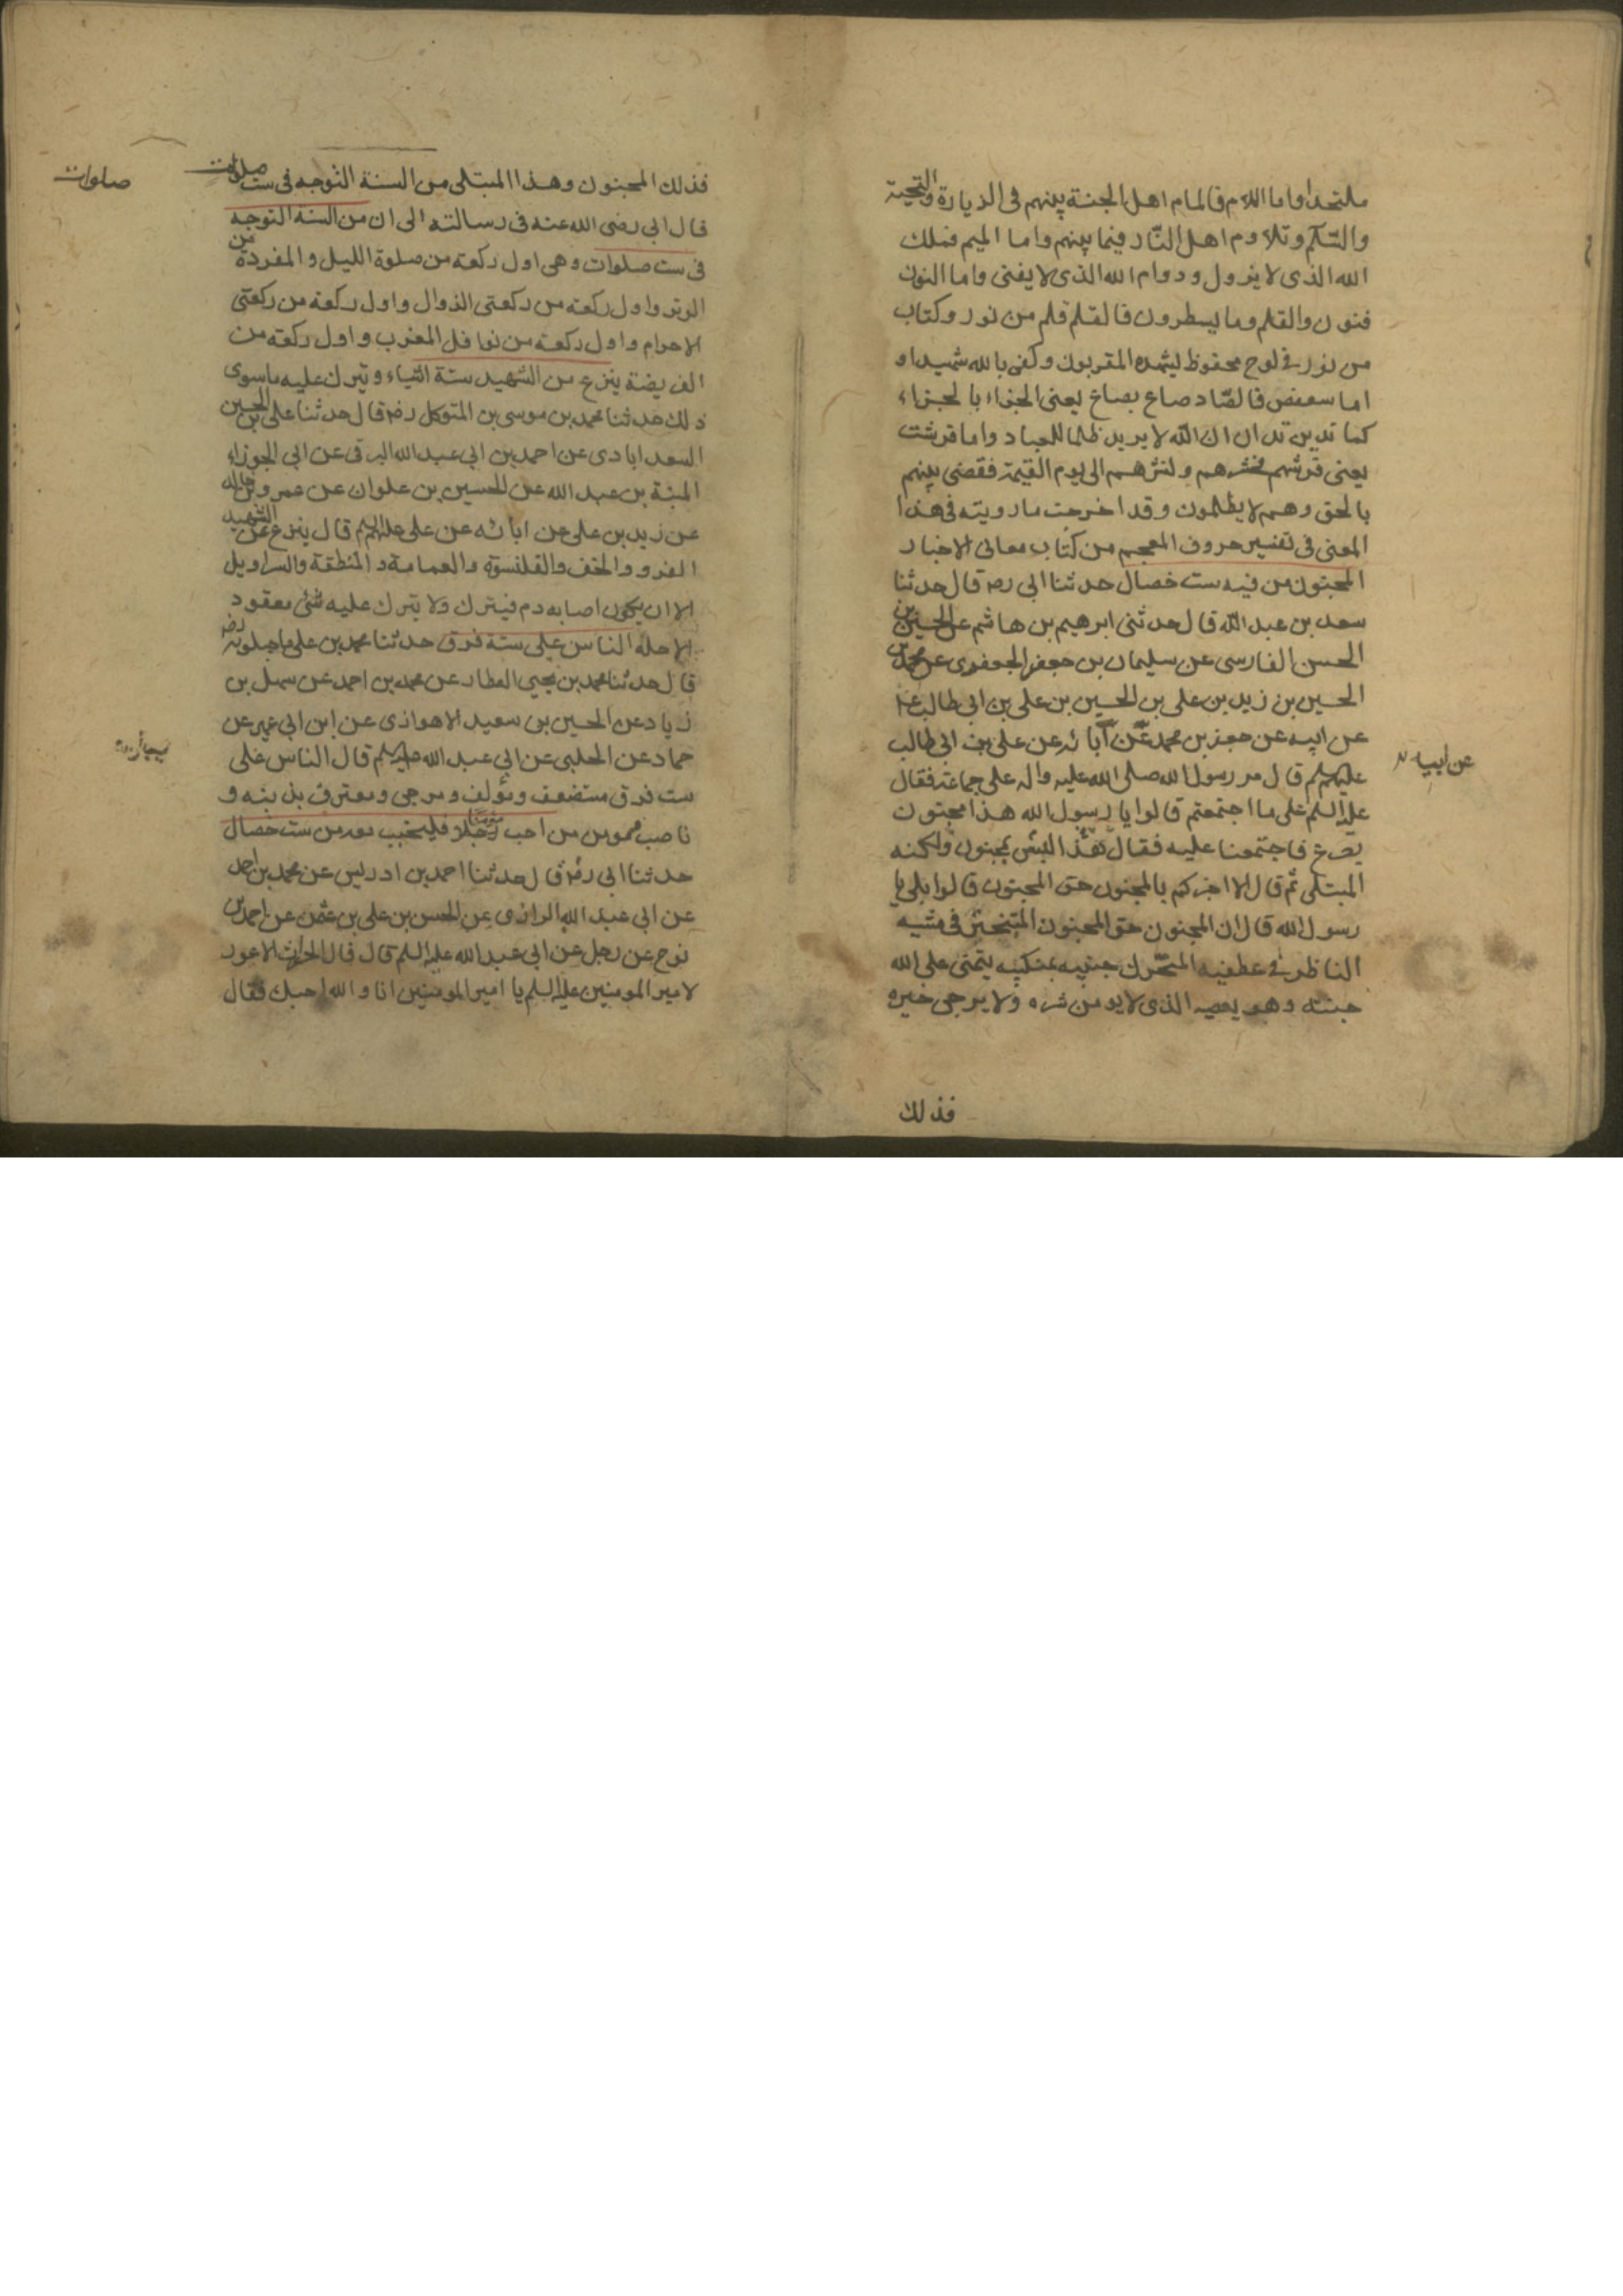 ملتحدا واما اللام فالمام اهل الجنة بينهم فى الزيارة والتحية
والسّلم وتلاوم اهل النّار فيما بينهم واما الميم فملك
الله الذى لا يزول ودوام الله الذى لا يفنى واما النون
فنون والقلم وما يسطرون فالقلم قلم من نور وكتاب
من نور فى لوح محفوظ يشهده المقربون وكفى بالله شهيدا و
اما سعفص فالصّاد صاع بصاع يعنى الجزاء بالجزاء
كما تدين تدان ان الله لا يريد ظلما للعباد واما قرشت
يعنى قرشهم فحشرهم ونشرهم الى يوم القيمة فقضى بينهم
بالحق وهم لا يظلمون وقد اخرجت ما رويته فى هذا
المعنى فى تفسير حروف المعجم من كتاب معانى الاخبار
المجنون من فيه ست خصال حدثنا ابى رحمه قال حدثنا
سعد بن عبد الله قال حدثنى ابرهيم بن هاشم عن الحسين بن
الحسن الفارسى عن سليمان بن جعفر الجعفرى عن محمد بن
الحسين بن زيد بن على بن الحسين بن على بن ابى طالب ع
عن ابيه عن جعفر بن محمد عن آبائه عن على بن ابى طالب
عن ابيه
عليهم السلم قال مر رسول الله صلى الله عليه واله على جماعة فقال
عليه السلم على ما اجتمعتم قالوا يا رسول الله هذا مجنون
يصرع فاجتمعنا عليه فقال هذا ليس بمجنون ولكنه
المبتلى ثم قال الا اخبركم بالمجنون حق المجنون قالوا بلى يا
رسول الله قال ان المجنون حق المجنون المتبختر فى مشيه
الناظر فى عطفيه المتحرك جنبيه بمنكبيه يتمنى على الله
جنته وهو يعصيه الذى لا يومن شره ولا يرجى خيره
فذلك
فذلك المجنون وهذا المبتلى من السنة التوجه فى ست صلوات
صلوات
قال ابى رضى الله عنه فى رسالته الى ان من السنة التوجه
فى ست صلوات وهى اول ركعة من صلوة الليل والمفردة من
الوتر واول ركعة من ركعتى الزوال واول ركعة من ركعتى
الاحرام واول ركعة من نوافل المغرب واول ركعة من
الفريضة ينزع من الشهيد ستة اشياء ويترك عليه ما سوى
ذلك حدثنا محمد بن موسى بن المتوكل رضه قال حدثنا على بن الحسين
السعدابادى عن احمد بن ابى عبد الله البرقى عن ابى الجوزاء
المنبة بن عبد الله عن الحسين بن علوان عن عمرو بن خالد
عن زيد بن على عن ابائه عن على عليهم السلم قال ينزع عن الشهيد
الفرو والخف والقلنسوة والعمامة والمنطقة والسراويل
الا ان يكون اصابه دم فيترك ولا يترك عليه شئ معقود
الا حله الناس على ستة فرق حدثنا محمد بن على ماجيلويه رضه
قال حدثنا محمد بن يحيى العطار عن محمد بن احمد عن سهل بن
زياد عن الحسين بن سعيد الاهوازى عن ابن ابى عمير عن
حماد عن الحلبى عن ابى عبد الله عليه السلم قال الناس على
ست فرق مستضعف ومؤلف ومرجى ومعترف بذنبه و
ناصب ومومن من احب رجلا فليجنب من ست خصال
حدثنا ابى رضه قال حدثنا احمد بن ادريس عن محمد بن احمد
عن ابى عبد الله الرازى عن الحسن بن على بن عثمن عن احمد بن
نوح عن رجل عن ابى عبد الله عليه السلم قال قال الحارث الاعور
لامير المومنين عليه السلم يا امير المومنين انا والله احبك فقال